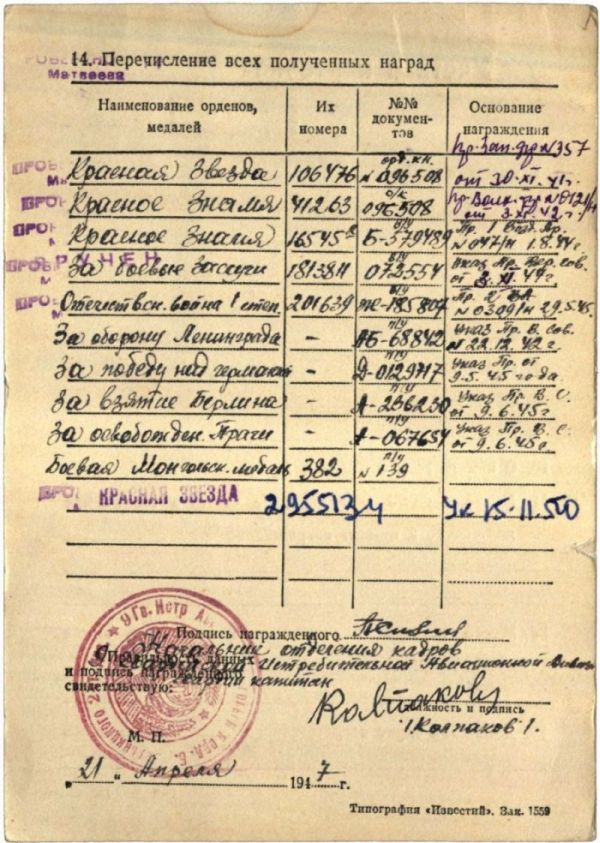 14. Перечисление всех полученных наград
Матвеева
Наименование орденов, медалей
Их номера
№№ документов
Основание награждения
Красная Звезда 106476 орд. кн. № 096508 пр. Зап. фр. № 357 от 30.XI.41г.
Красное Знамя 41263 о/к 096508 от 3.XI.42г.
Красное Знамя Б-579489 1.8.44г.
За боевые заслуги п/у 072554 Указ Вер. Сов.
Отечествен. война 1 степ. 201639 185807 № 0309/н 29.5.45.
За оборону Ленинграда - п/у АБ-68842 Указ Пр. В. Сов. № 22.12.42г.
За победу над германи - п/у Д-0129717 Указ Пр. от 9.5.45 года.
За взятие Берлина - п/у А-236230 Указ Пр. В. С. от 9.6.45г
За освобожден. Праги - п/у А-067654 Указ Пр. В. С. от 9.6.45г
Боевая Монгольск. медаль 382 п/у № 139
КРАСНАЯ ЗВЕЗДА 2955134 Ук 15.11.50
Подпись награжденного
Начальник отделения кадров
Правильность данных
Истребительной Авиационной
и подпись награжденного
свидетельствую:
капитан
Колпаков
Должность и подпись
/Колпаков/.
М. П.
„21“ Апреля 1947 г.
Типография «Известий». Зак. 1559